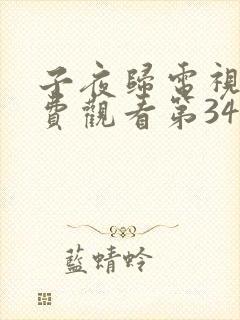 子夜歸電視
費觀看第34
藍蜻蛉